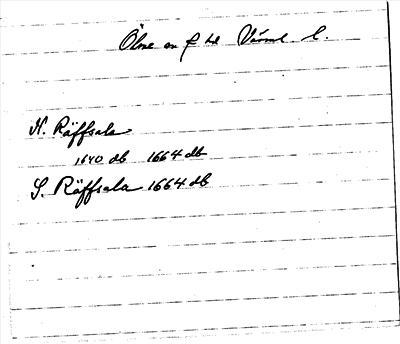 Ölme sn f hd Värml l.
N. Räffsala
1640 db 1664 db
S. Räffsala 1664 db